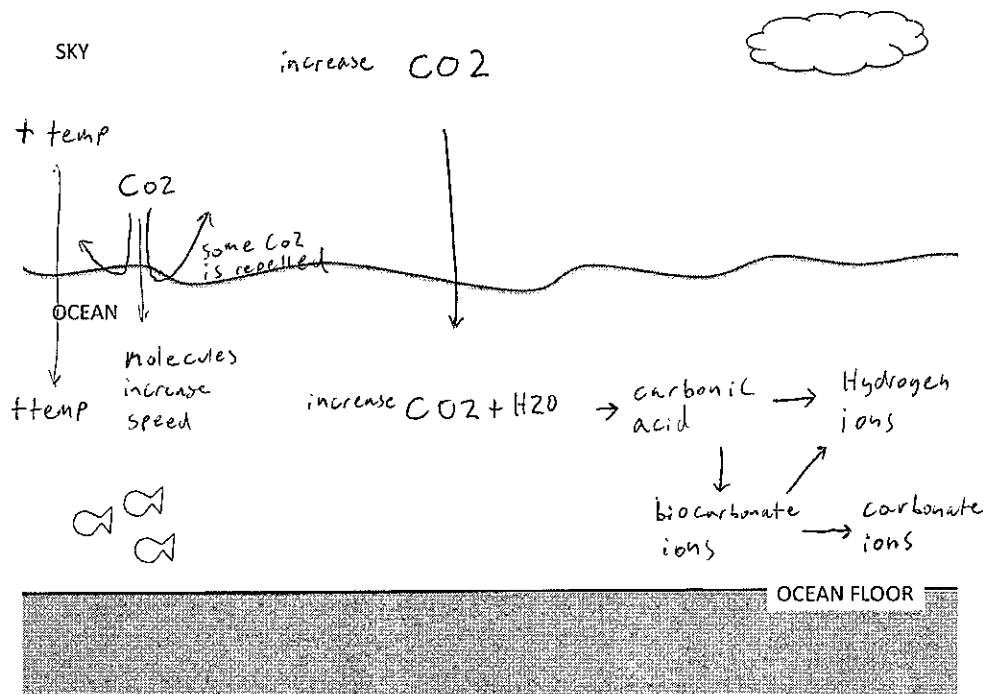 SKY
increase CO2
+ temp
CO2
some CO2
is repelled
OCEAN
molecules
increase
speed
+temp
increase CO2 + H2O → carbonic
acid → Hydrogen
ions
biocarbonate
ions → carbonate
ions
OCEAN FLOOR